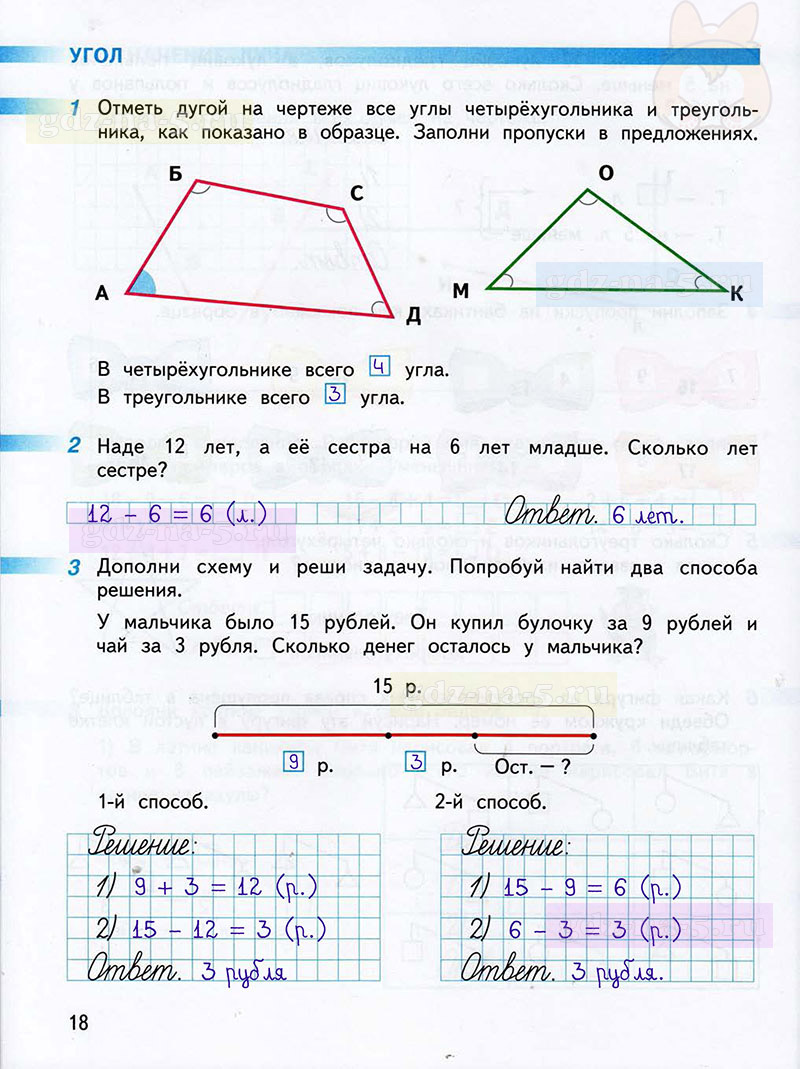 УГОЛ
1 Отметь дугой на чертеже все углы четырёхугольника и треуголь-
ника, как показано в образце. Заполни пропуски в предложениях.
gdz-na-5.ru
Б
С
О
А
Д
М
К
gdz-na-5.ru
В четырёхугольнике всего 4 угла.
В треугольнике всего 3 угла.
2 Наде 12 лет, а её сестра на 6 лет младше. Сколько лет
сестре?
12 – 6 = 6 (л.) Ответ. 6 лет.
gdz-na-5.ru
3 Дополни схему и реши задачу. Попробуй найти два способа
решения.
У мальчика было 15 рублей. Он купил булочку за 9 рублей и
чай за 3 рубля. Сколько денег осталось у мальчика?
15 р.
gdz-na-5.ru
9 р. 3 р. Ост. – ?
1-й способ.
Решение:
1) 9 + 3 = 12 (р.)
2) 15 – 12 = 3 (р.)
Ответ. 3 рубля
2-й способ.
Решение:
1) 15 – 9 = 6 (р.)
2) 6 – 3 = 3 (р.)
gdz-na-5.ru
Ответ. 3 рубля.
18